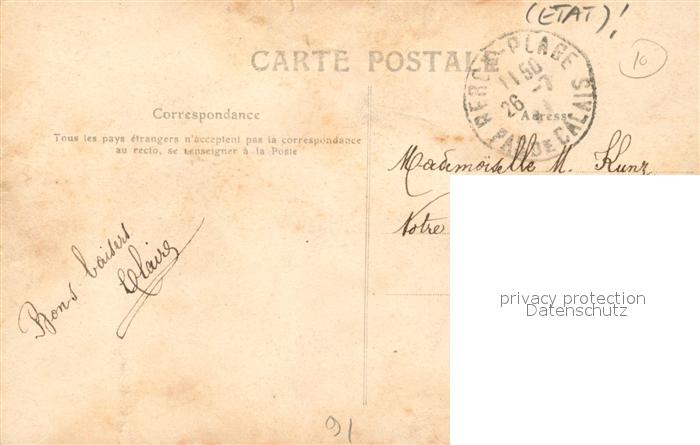 (ETAT)!
10
CARTE POSTALE
BERCK-PLAGE
11 50
26
PAS DE CALAIS
Correspondance
Adresse
Tous les pays étrangers n'acceptent pas la correspondance
au recto, se renseigner à la Poste
Mademoiselle M. Kunz
Notre
Bons baisers
Claire
privacy protection
Datenschutz
91